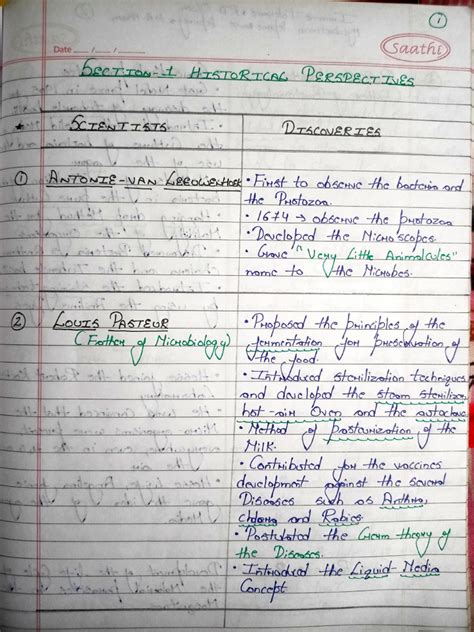 1
Date __/__/__
Saathi
SECTION-1 HISTORICAL PERSPECTIVES
* SCIENTISTS DISCOVERIES
① ANTONIE-VAN LEEUWENHOEK • First to observe the bacteria and
the Protozoa.
• 1674 → observe the protozoa
• Developed the Microscopes.
• Gave "Very Little Animalcules"
name to the Microbes.
② LOUIS PASTEUR • Proposed the principles of the
(Father of Microbiology) fermentation for preservation of
the food.
• Introduced sterilization techniques
and developed the steam sterilizer,
hot-air Oven and the autoclave.
• Method of pasteurization of the
Milk.
• Contributed for the vaccines
development against the several
Diseases such as
and Rabies.
• Postulated the Germ theory of
the Diseases.
• Introduced the Liquid-Media
Concept